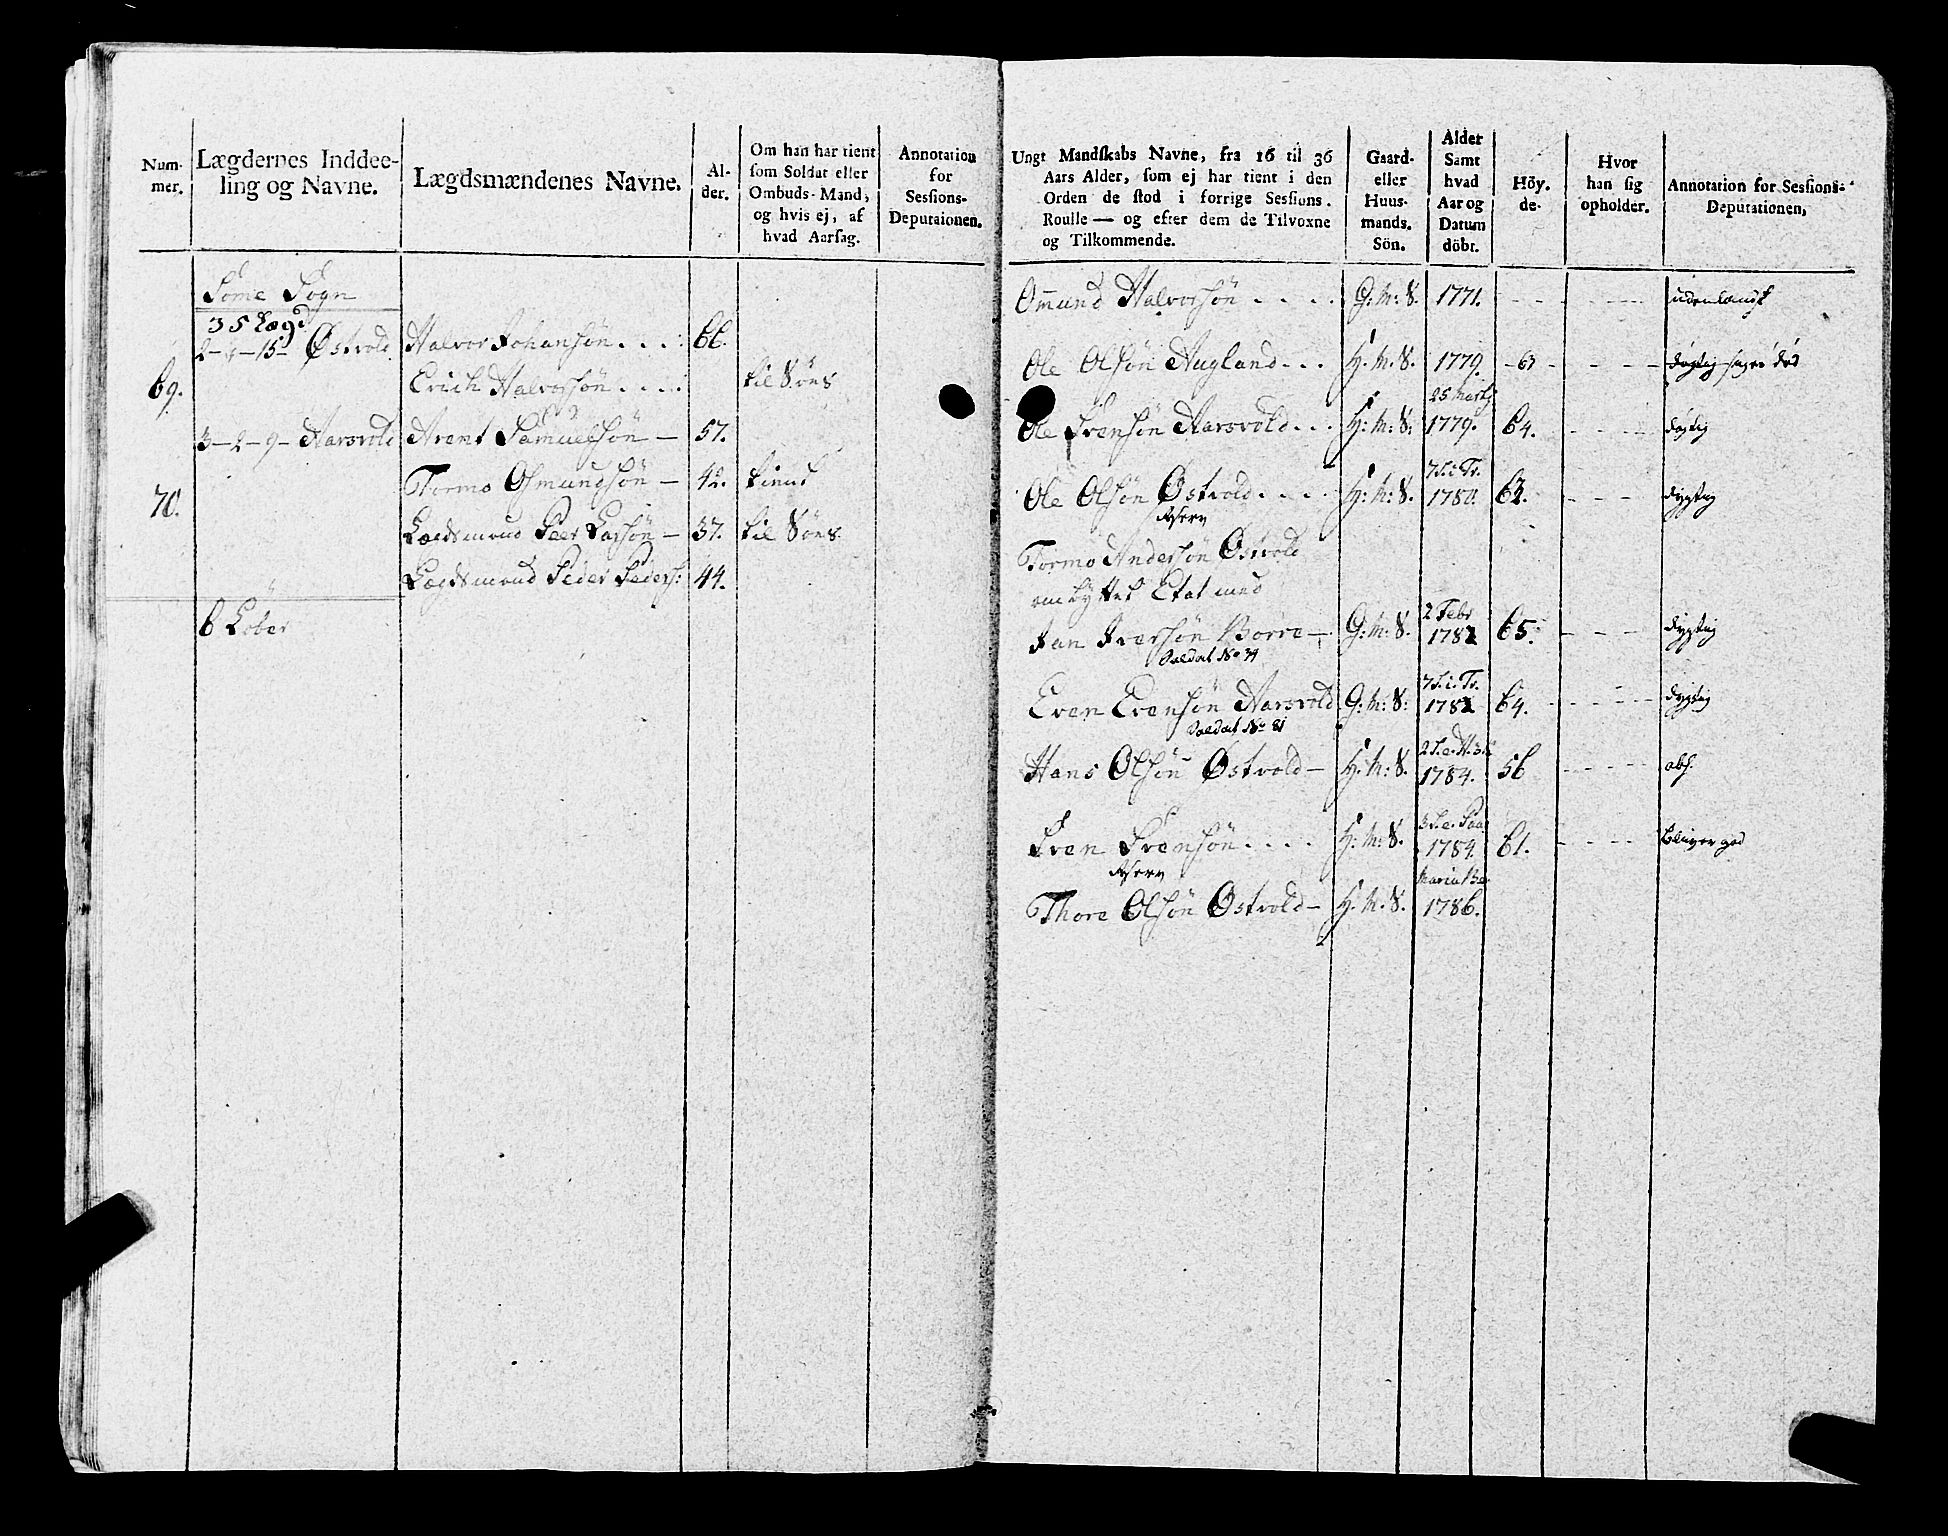 Num-
mer.
Lægdernes Inddee-
ling og Navne.
Lægdsmændenes Navne.
Al-
der.
Om han har tient
som Soldat eller
Ombuds-Mand,
og hvis ej, af
hvad Aarsag.
Annotation
for
Sessions-
Deputaionen.
Some Sogn
35 Lægd
2 - 15 - Østvold Halvor Johansön . . . . 66.
69. Erich Halvorsön . . . . til Söes
3 - 2 - 9 - Aarsvold Arent Samuelsön — 57.
70. Tormo Osmundsön — 42. tient
Lægdsmand Peer Larsön — 37. til Söes
Lægdsmand Peder Peders: 44.
6 Lober
Ungt Mandskabs Navne, fra 16 til 36
Aars Alder, som ej har tient i den
Orden de stod i forrige Sessions-
Roulle — og efter dem de Tilvoxne
og Tilkommende.
Gaard-
eller
Huus-
mands.
Sön.
Alder
Samt
hvad
Aar og
Datum
döbt.
Höy.
de.
Hvor
han sig
opholder.
Annotation for Sessions-
Deputationen,
Omund Halvorsön . . . . G: M: S. 1771. udenlandsk
Ole Olsön Augland . . . H. M. S. 1779. - 63
25 Marty
Ole Svensön Aarsvold . . . H: M: S: 1779. 64. dögtig
7 S. i Tr.
Ole Olsön Östvold . . . . H: M: S. 1780. 63. dygtig
Reserv
Tormo Andersön Östvold
ombyttet Etat med
2 Febr
Jan Iversön Borre — G: M: S. 1782 65. dygtig
Soldat No 34
7 S. i. Tr.
Even Evensön Aarsvold G: M: S: 1782 64. dygtig
Soldat No 81
Hans Olsön Østvold — H. M: S. 1784. 56
Sven Svensön . . . . H: M: S. 1784. 61. bliver god
Reserv
Thore Olsön Østvold — H. M. S. 1786.